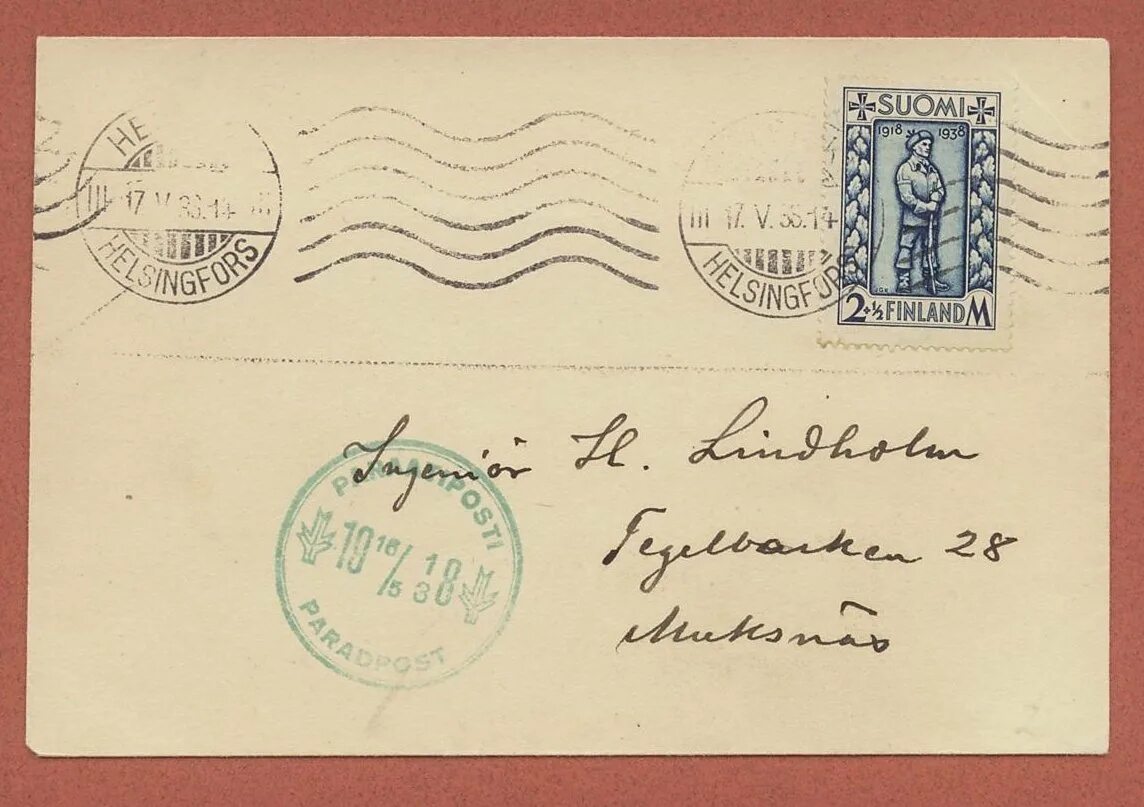 HE
III 17. V. 38.14 III
HELSINGFORS
III 17. V. 38.14
HELSINGFORS
SUOMI
1918 1938
2+½ FINLAND M
Ingeniör H. Lindholm
Tegelbacken 28
Munksnäs
PARAATIPOSTI
19 16/5 38
PARADPOST